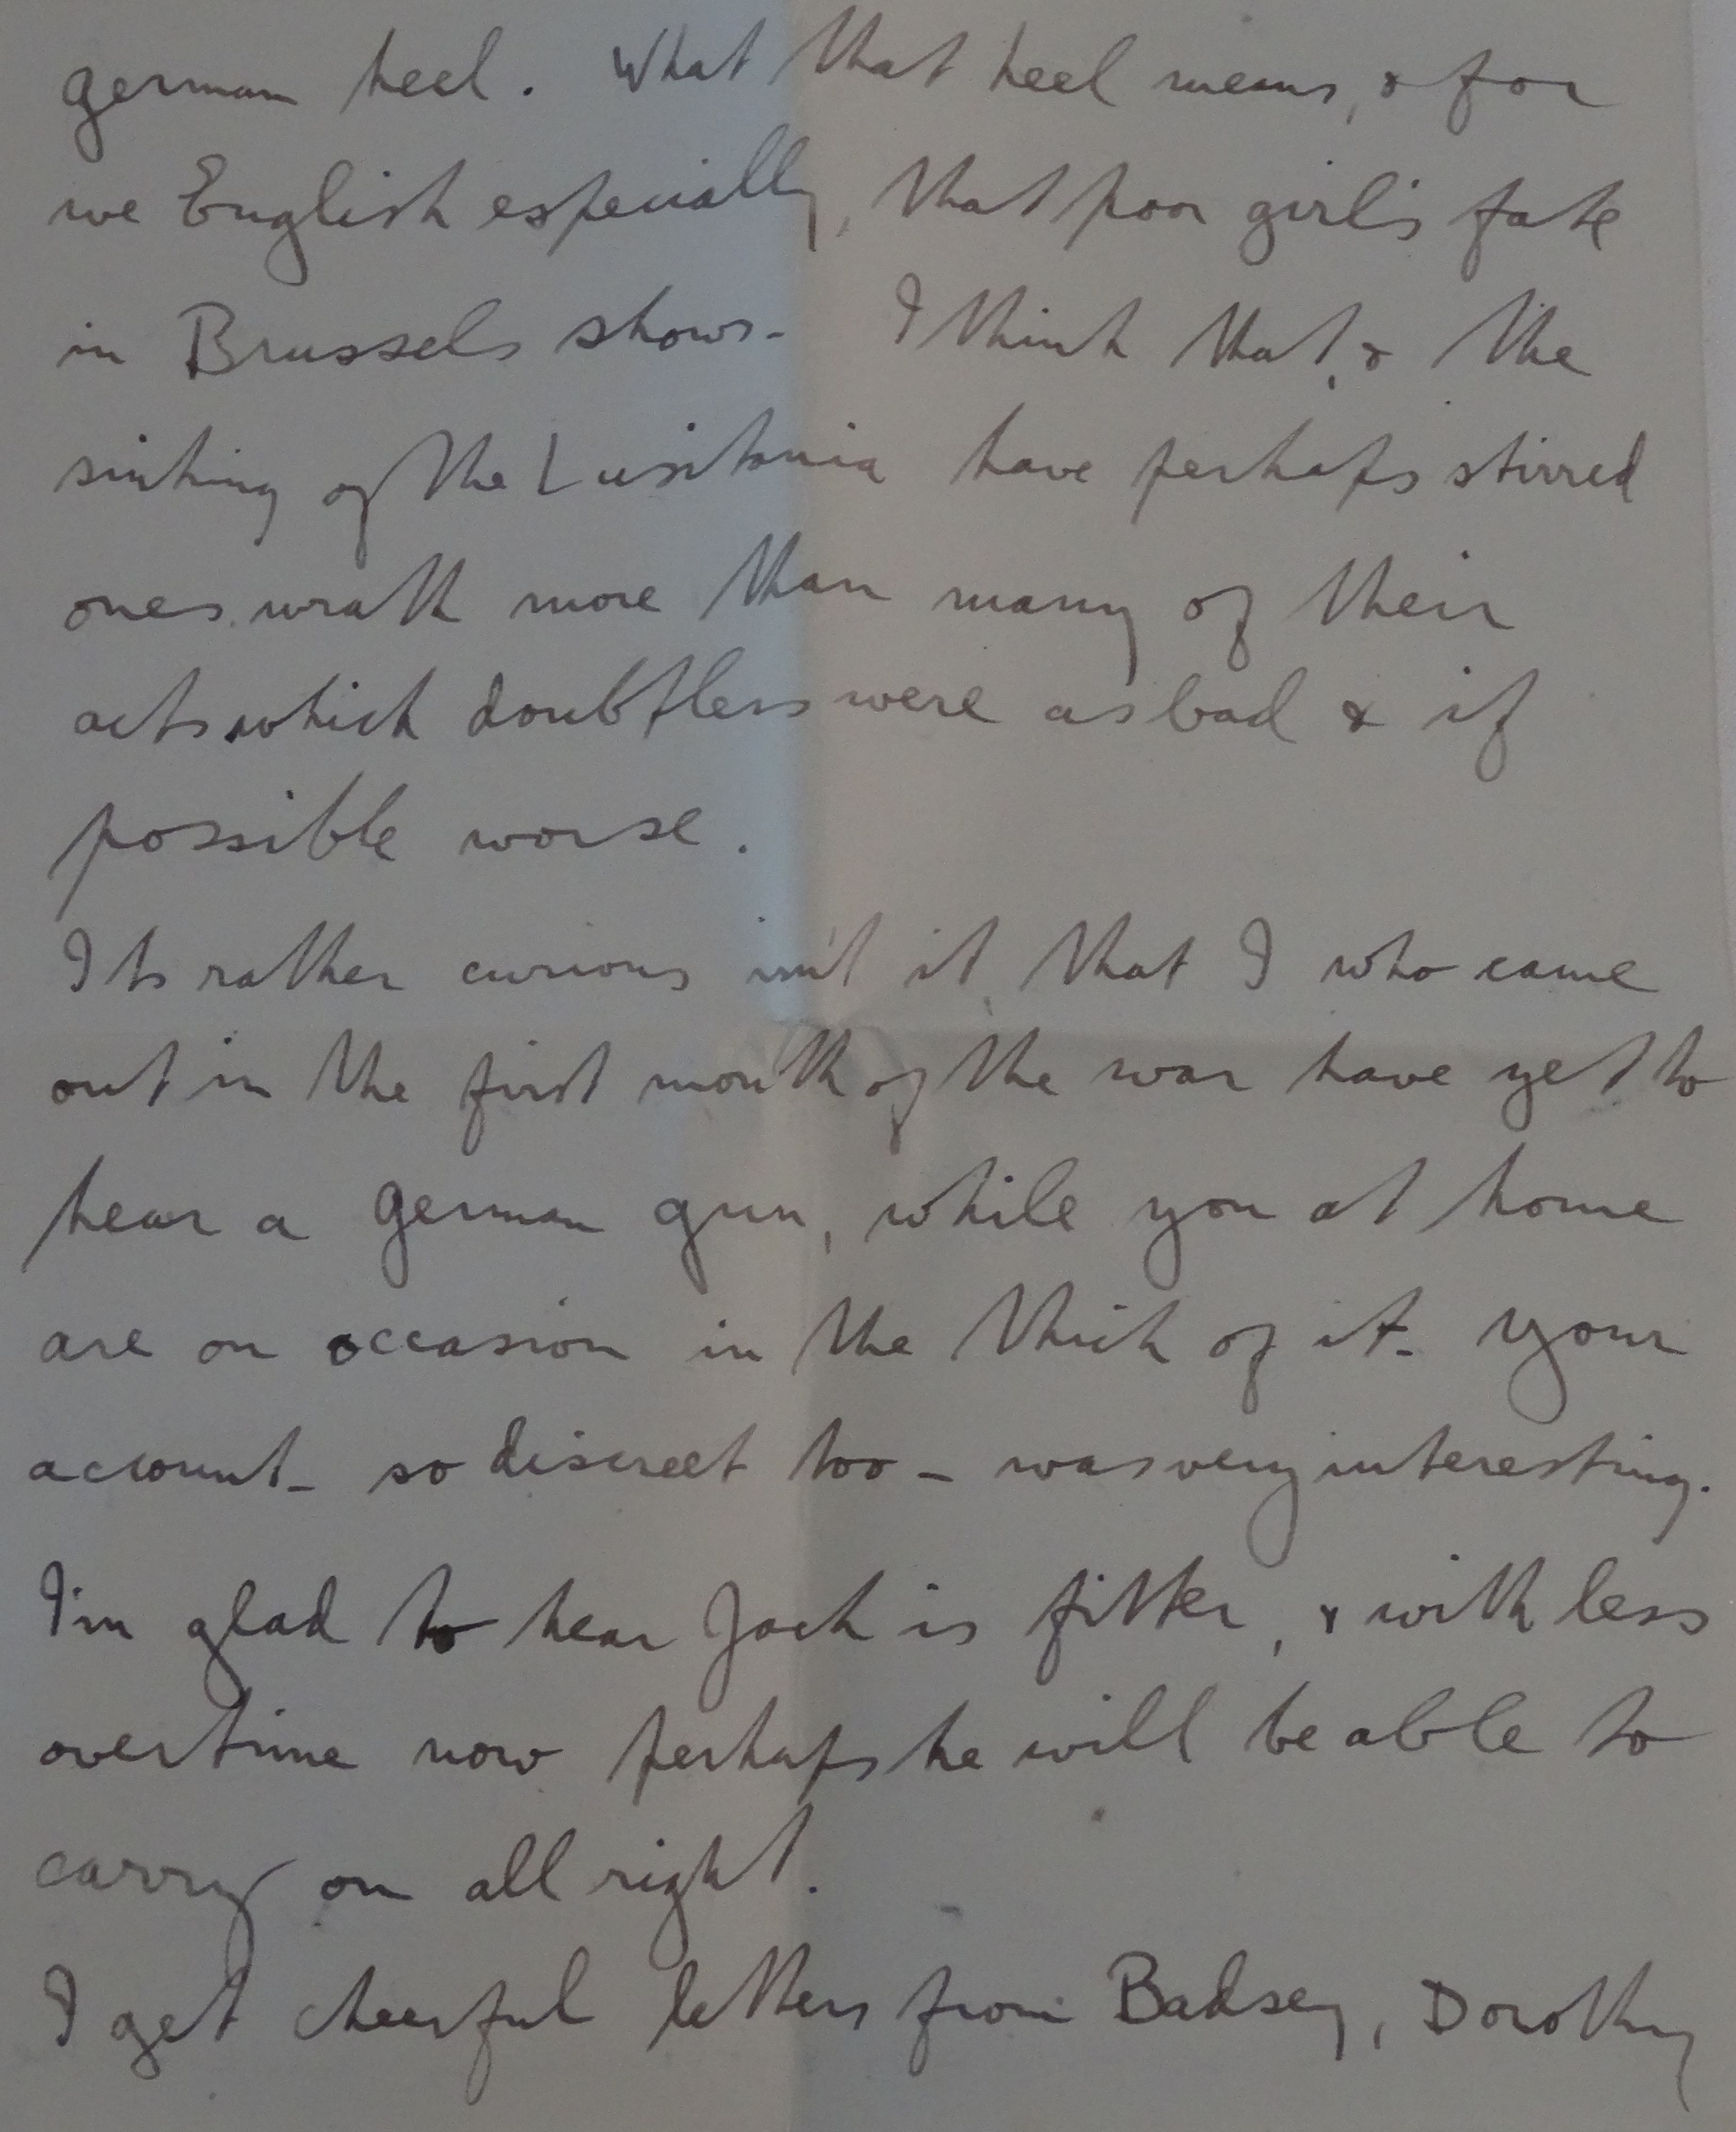 german heel. What that heel means, & for
we English especially, that poor girl's fate
in Brussels shows - I think that, & the
sinking of the Lusitania have perhaps stirred
ones wrath more than many of their
acts which doubtless were as bad & if
possible worse.
Its rather curious isn't it, that I who came
out in the first month of the war have yet to
hear a german gun, while you at home
are on occasion in the thick of it - your
account - so discreet too - was very interesting.
I'm glad to hear Jack is fitter, & with less
overtime now perhaps he will be able to
carry on all right.
I get cheerful letters from Badsey, Dorothy